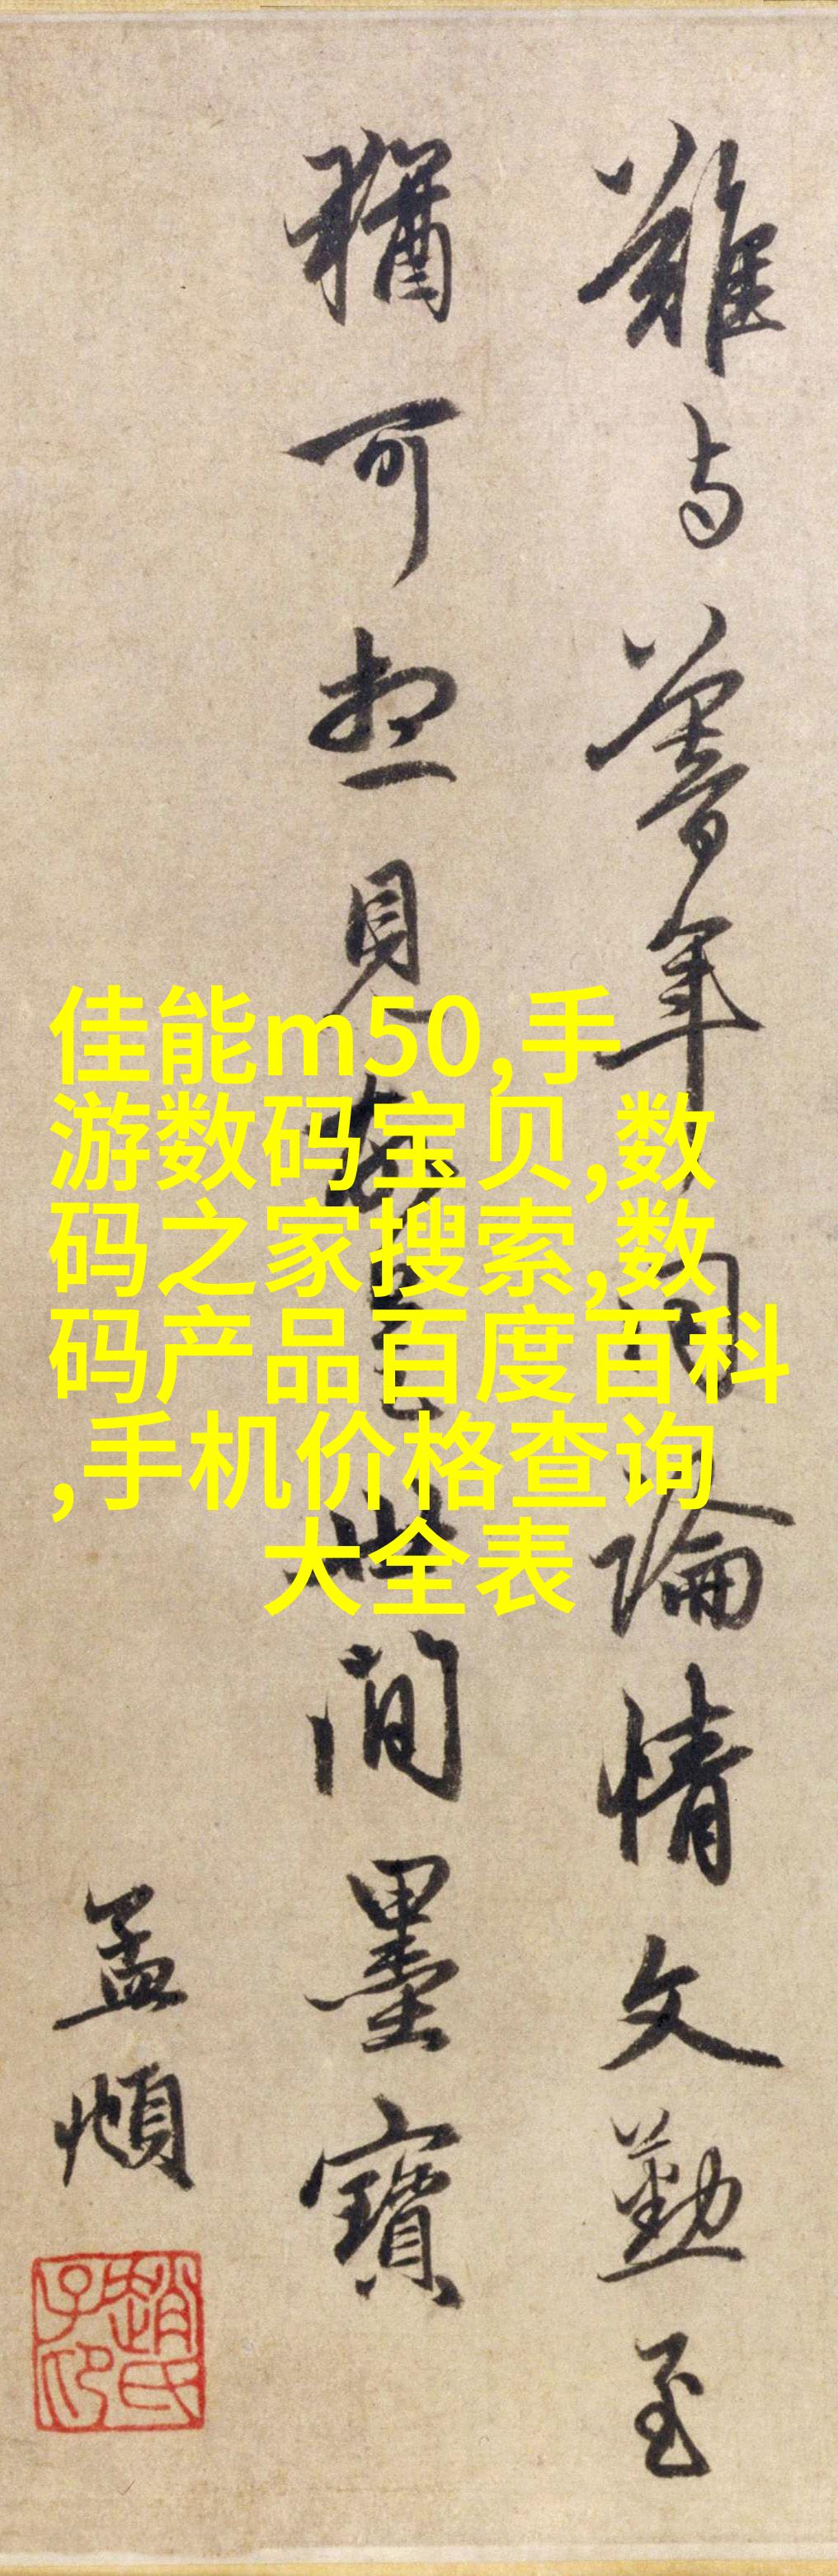 佳能m50,手
游数码宝贝,数
码之家搜索,数
码产品百度百科
,手机价格查询
大全表
難与暮年同論情文勤至
猶可想見世間墨寶
孟頫
趙氏子昂